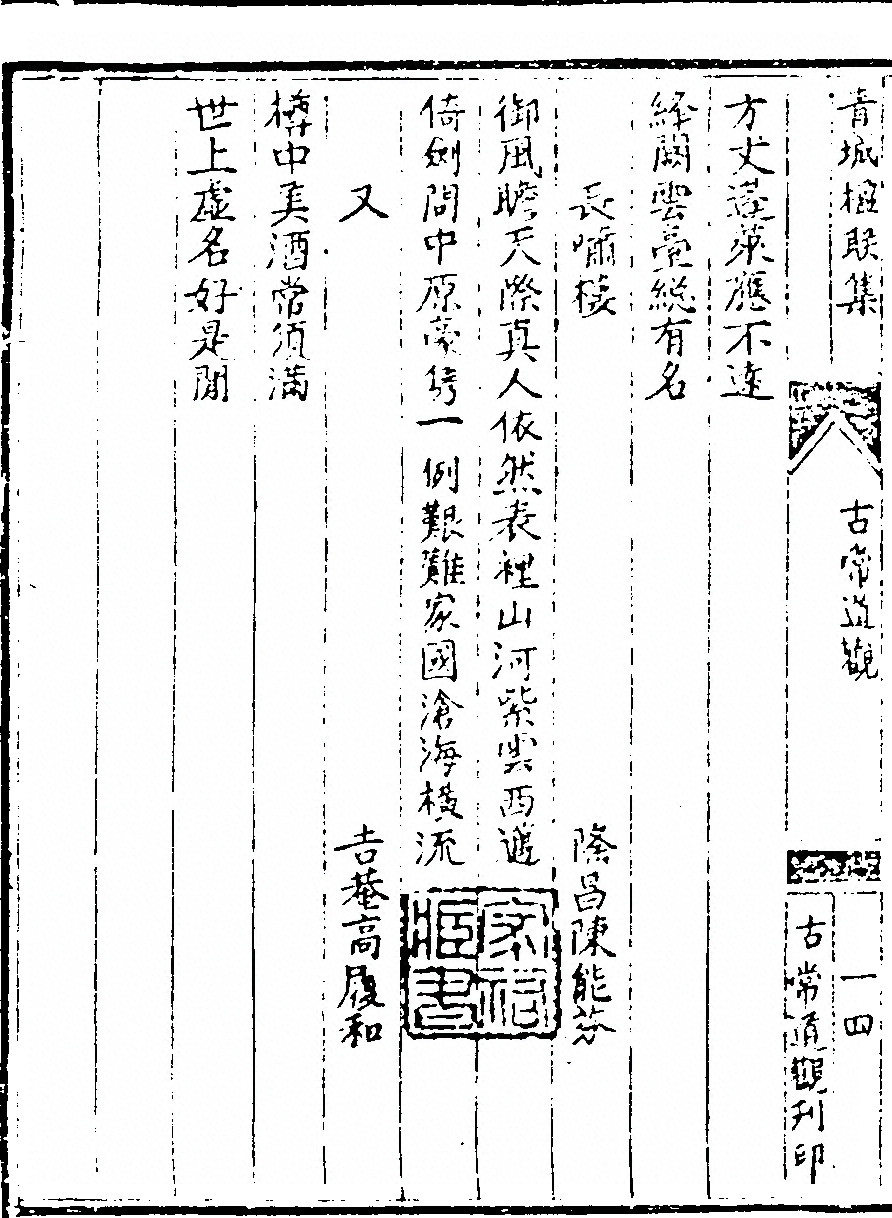 青城楹联集
古常道觀
一四
古常道觀刊印
方丈蓬萊應不遠
絳闕雲臺總有名
長嘯樓
隆昌陳能芬
御風瞻天際真人依然表裡山河紫雲西遞
倚劍問中原豪雋一例艱難家國滄海橫流
又
吉菴高履和
樽中美酒常須滿
世上虛名好是閒